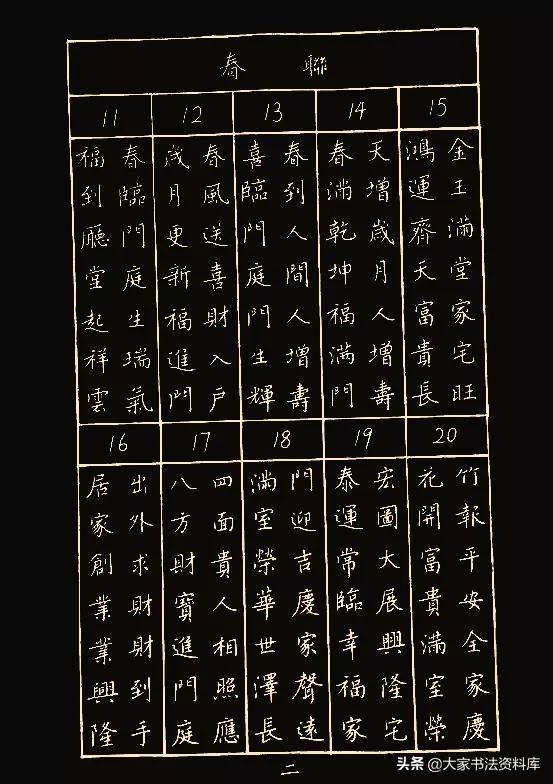 春聯
11
春臨門庭生瑞氣
福到廳堂起祥雲
12
春風送喜財入户
歲月更新福進門
13
春到人間人增壽
喜臨門庭門生輝
14
天增歲月人增壽
春滿乾坤福滿門
15
金玉滿堂家宅旺
鴻運齊天富貴長
16
出外求財財到手
居家創業業興隆
17
四面貴人相照應
八方財寶進門庭
18
門迎吉慶家聲遠
滿室榮華世澤長
19
宏圖大展興隆宅
泰運常臨幸福家
20
竹報平安全家慶
花開富貴滿室榮
二
头条 @大家书法资料库